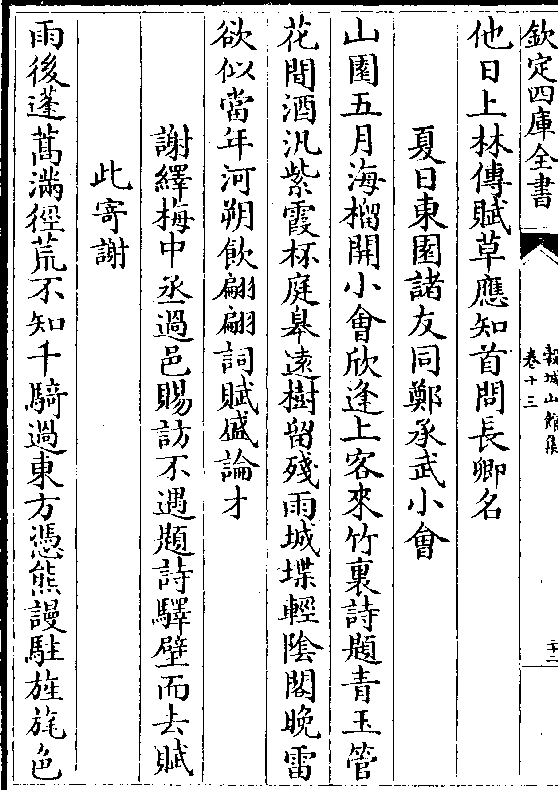 欽定四庫全書
穀城山館集
卷十三
二十二
他日上林傳賦草應知首問長卿名
夏日東園諸友同鄭承武小會
山園五月海榴開小會欣逢上客來竹裏詩題青玉管
花間酒汎紫霞杯庭臯遠樹留殘雨城堞輕陰閣晚雷
欲似當年河朔飲翩翩詞賦盛論才
謝繹梅中丞過邑賜訪不遇題詩驛壁而去賦
此寄謝
雨後蓬蒿滿徑荒不知千騎過東方憑熊謾駐旌旄色